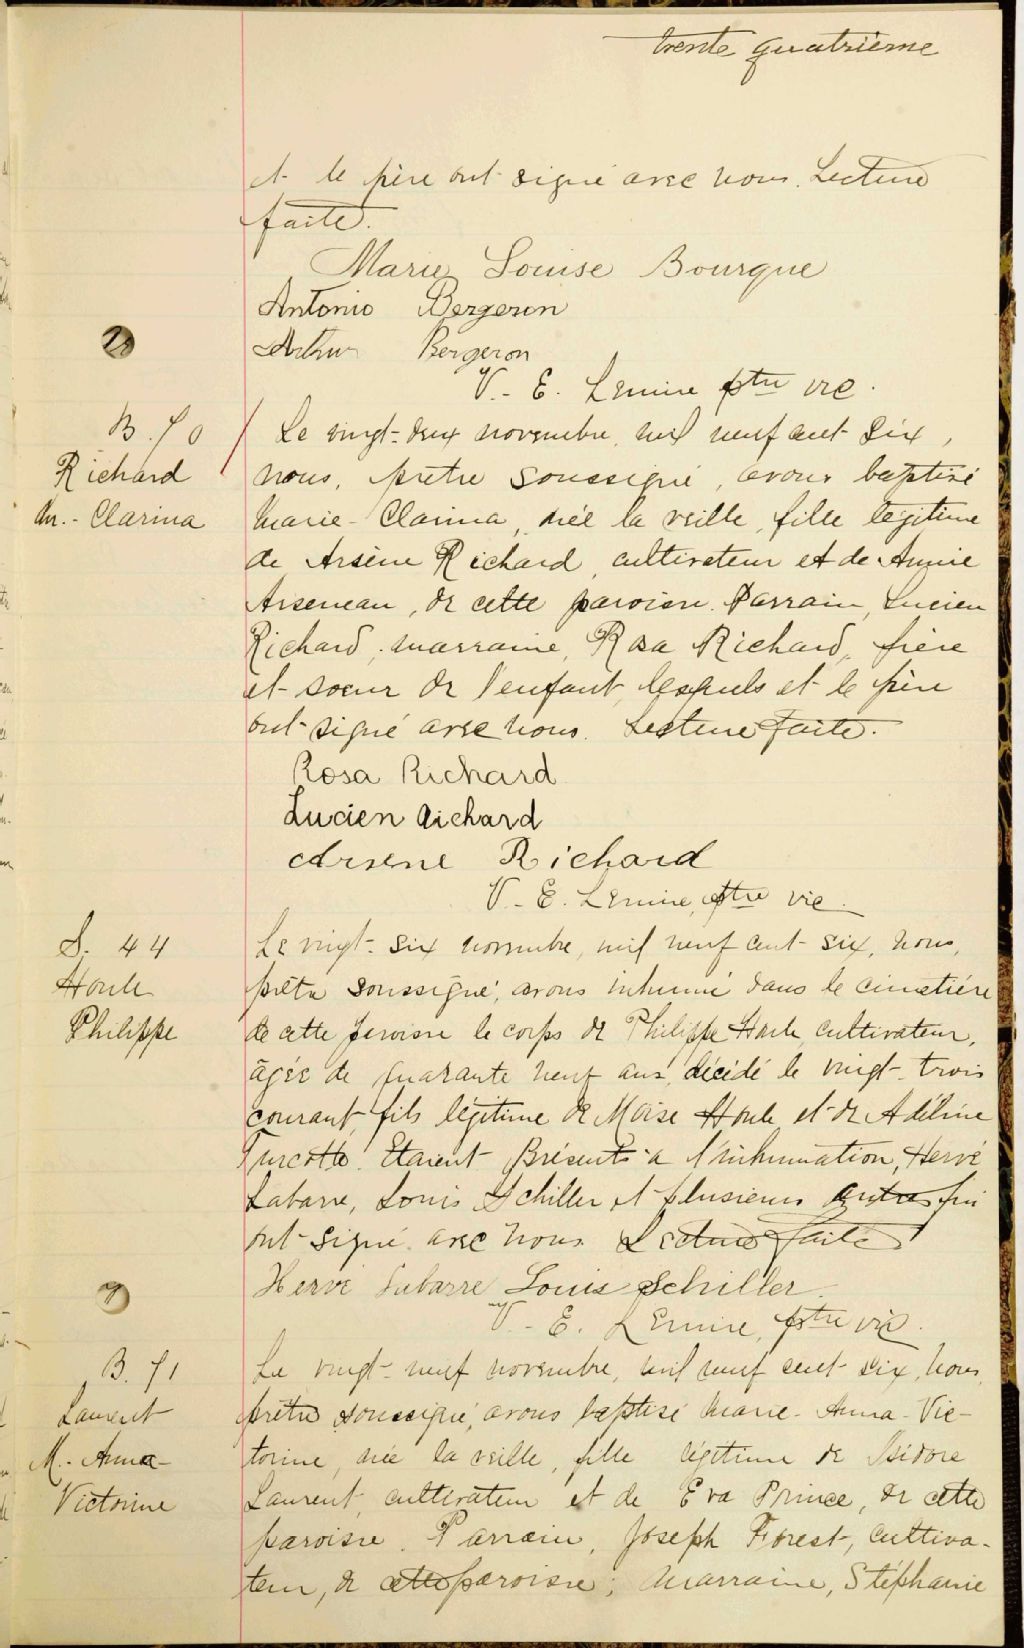 trente quatrième
et le père ont signé avec nous. Lecture
faite.
Marie Louise Bourque
Antonio Bergeron
Arthur Bergeron
V.- E. Lemire ptre vic.
B. 70
Richard
M.- Clarina
Le vingt-deux novembre, mil neuf cent six,
nous, prêtre soussigné, avons baptisé
Marie-Clarina, née la veille, fille légitime
de Arsène Richard, cultivateur et de Annie
Arseneau, de cette paroisse. Parrain, Lucien
Richard, marraine, Rosa Richard, frère
et soeur de l'enfant, lesquels et le père
ont signé avec nous. Lecture faite.
Rosa Richard
Lucien Richard
Arsene Richard
V.- E. Lemire, ptre vic.
S. 44
Houle
Philippe
Le vingt-six novembre, mil neuf cent six, nous,
prêtre soussigné, avons inhumé dans le cimetière
de cette paroisse le corps de Philippe Houle, cultivateur,
âgée de quarante neuf ans, décédé le vingt-trois
courant, fils légitime de Moïse Houle et de Adéline
Turcotte. Etaient présents à l'inhumation, Hervé
Labarre, Louis Schiller et plusieurs autres qui
ont signé avec nous. Lecture faite
Herve Labarre Louis Schiller.
V.- E. Lemire, ptre vic.
B. 71
Laurent
M.- Anna-
Victorine
Le vingt-neuf novembre, mil neuf cent six, nous,
prêtre soussigné, avons baptisé Marie-Anna-Vic-
torine, née la veille, fille légitime de Isidore
Laurent, cultivateur et de Eva Prince, de cette
paroisse. Parrain, Joseph Forest, cultiva-
teur, de cette paroisse; marraine, Stéphanie